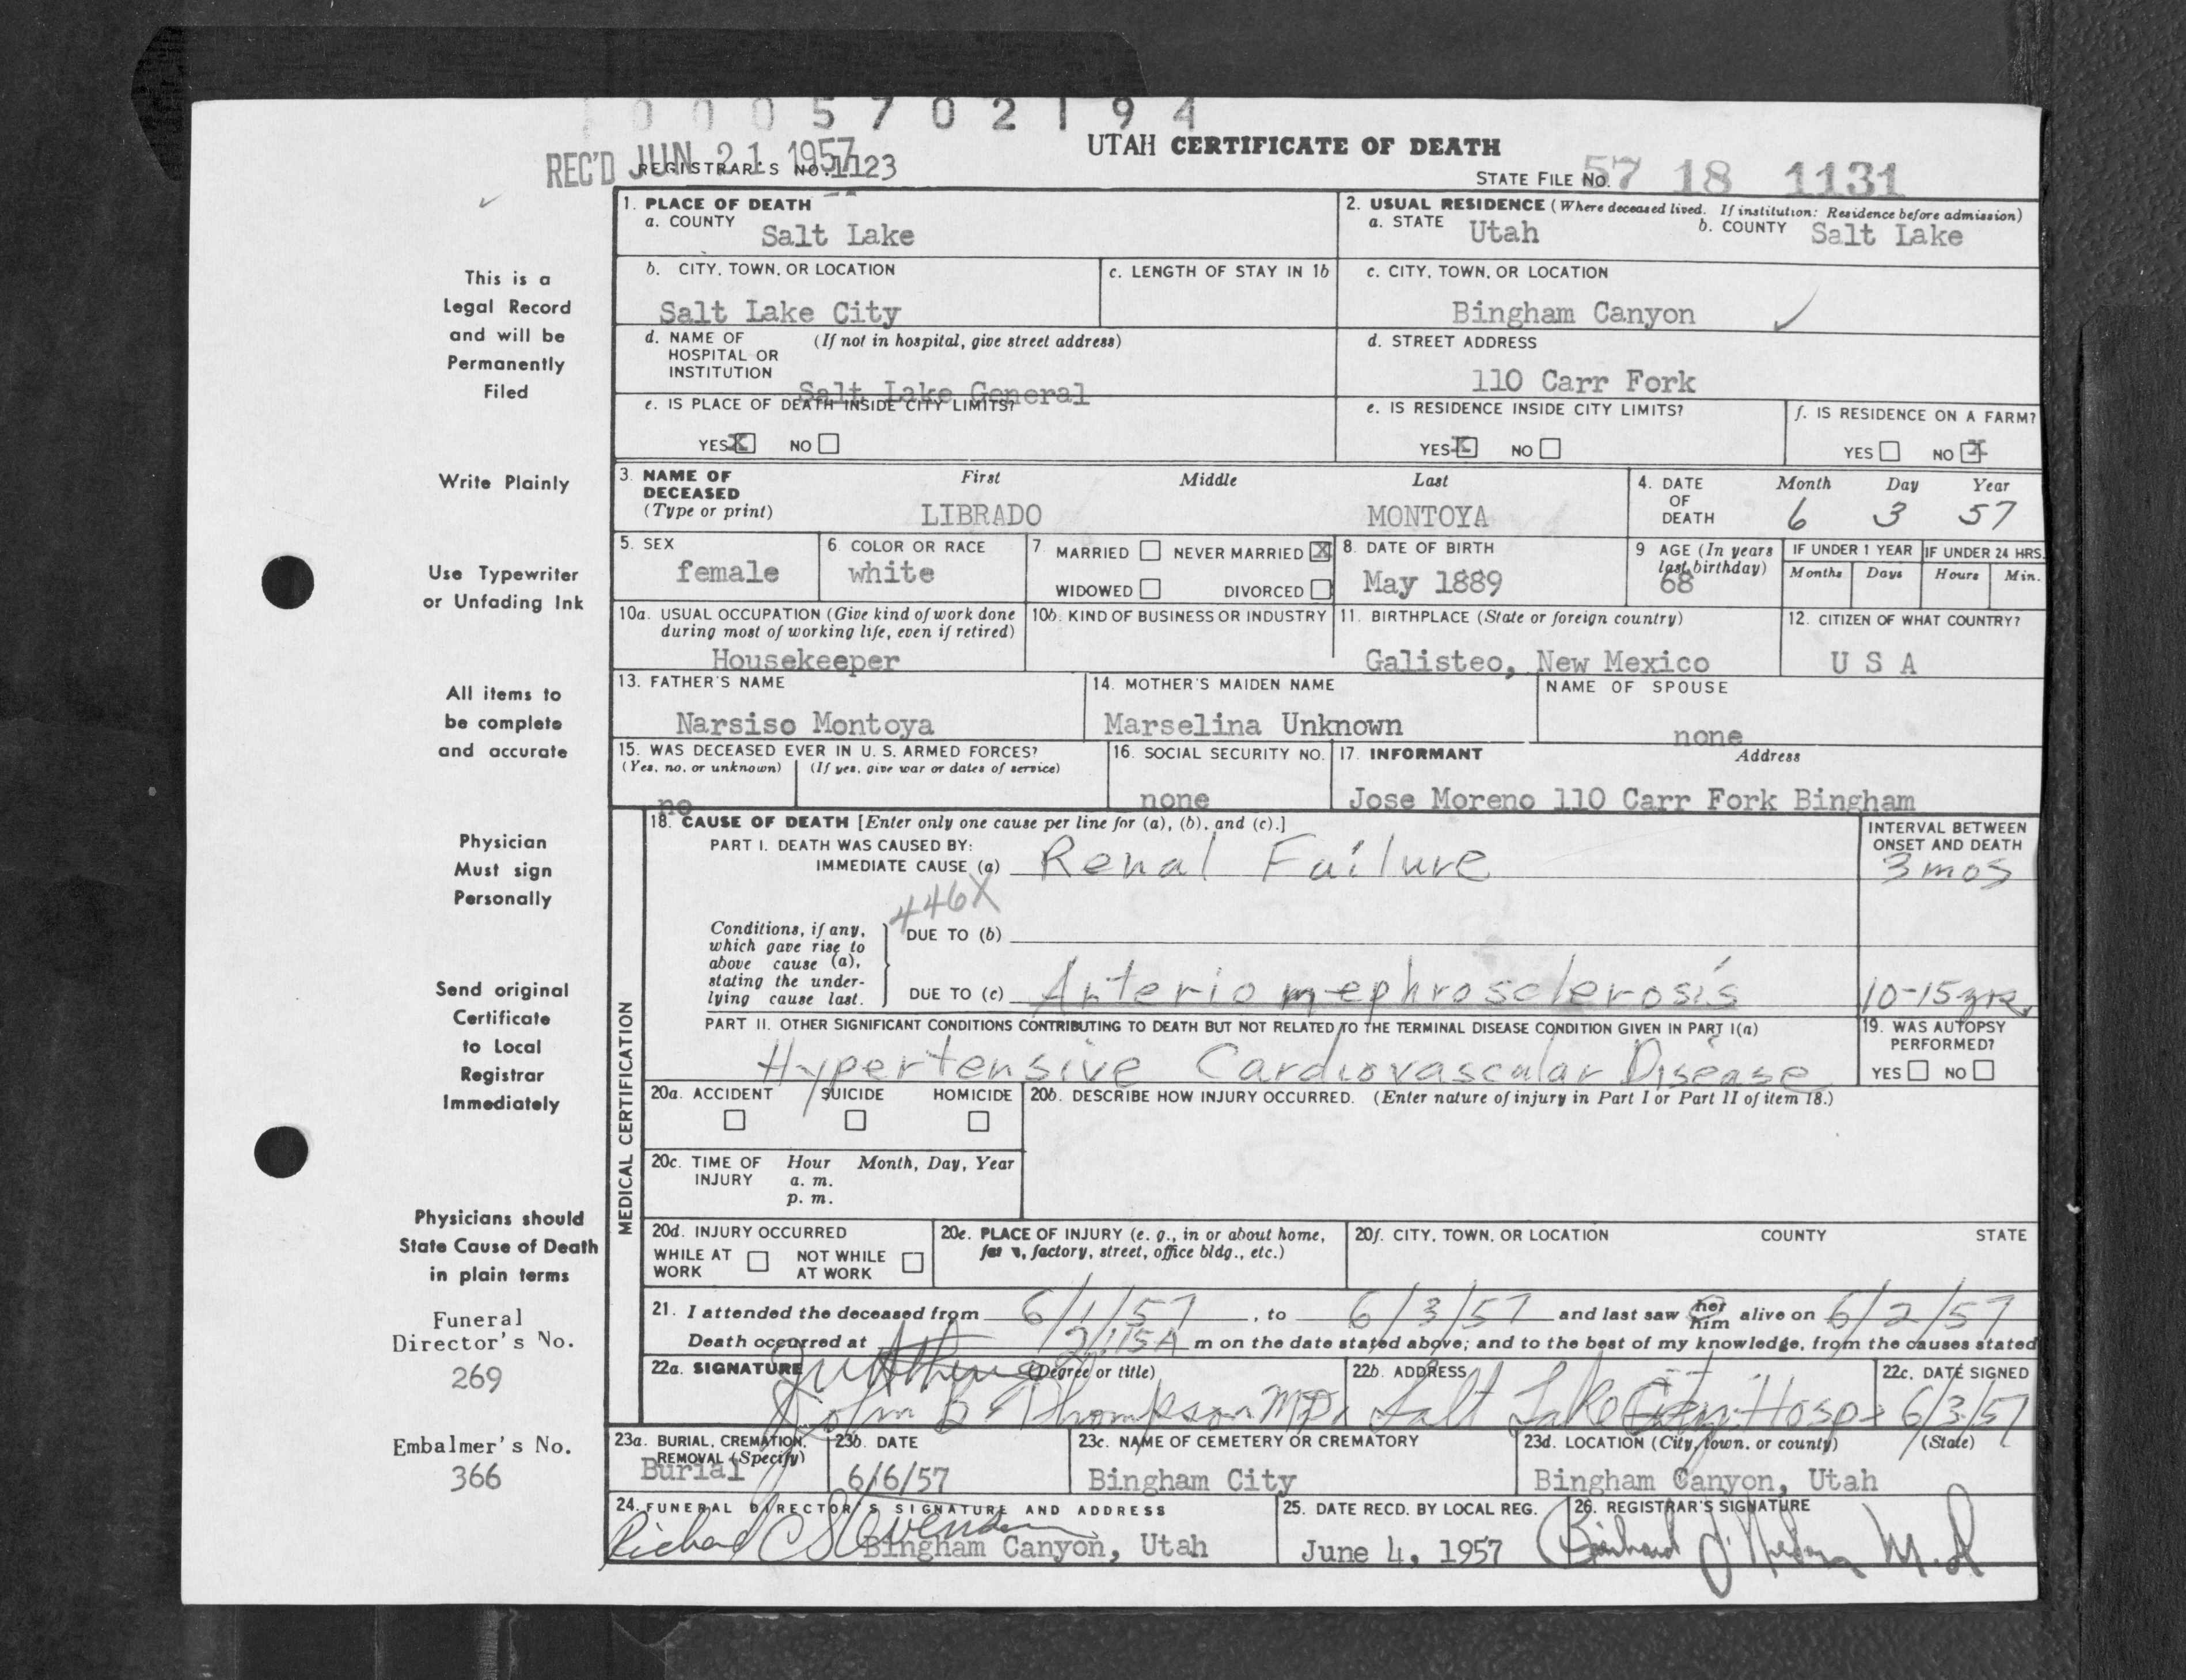 1 0 0 0 5 7 0 2 1 9 4
UTAH CERTIFICATE OF DEATH
REC'D JUN 21 1957
REGISTRAR'S NO. 1123
STATE FILE NO. 57 18 1131
This is a
Legal Record
and will be
Permanently
Filed
Write Plainly
Use Typewriter
or Unfading Ink
All items to
be complete
and accurate
Physician
Must sign
Personally
Send original
Certificate
to Local
Registrar
Immediately
Physicians should
State Cause of Death
in plain terms
Funeral
Director's No.
269
Embalmer's No.
366
1. PLACE OF DEATH
a. COUNTY Salt Lake
2. USUAL RESIDENCE (Where deceased lived. If institution: Residence before admission)
a. STATE Utah b. COUNTY Salt Lake
b. CITY, TOWN, OR LOCATION
Salt Lake City
c. LENGTH OF STAY IN 1b
c. CITY, TOWN, OR LOCATION
Bingham Canyon
d. NAME OF HOSPITAL OR INSTITUTION (If not in hospital, give street address)
Salt Lake General
d. STREET ADDRESS
110 Carr Fork
e. IS PLACE OF DEATH INSIDE CITY LIMITS?
YES X NO
e. IS RESIDENCE INSIDE CITY LIMITS?
YES X NO
f. IS RESIDENCE ON A FARM?
YES NO X
3. NAME OF DECEASED (Type or print)
First Middle Last
LIBRADO MONTOYA
4. DATE OF DEATH
Month Day Year
6 3 57
5. SEX
female
6. COLOR OR RACE
white
7. MARRIED NEVER MARRIED X
WIDOWED DIVORCED
8. DATE OF BIRTH
May 1889
9 AGE (In years last birthday)
68
IF UNDER 1 YEAR
Months Days
IF UNDER 24 HRS.
Hours Min.
10a. USUAL OCCUPATION (Give kind of work done during most of working life, even if retired)
Housekeeper
10b. KIND OF BUSINESS OR INDUSTRY
11. BIRTHPLACE (State or foreign country)
Galisteo, New Mexico
12. CITIZEN OF WHAT COUNTRY?
U S A
13. FATHER'S NAME
Narsiso Montoya
14. MOTHER'S MAIDEN NAME
Marselina Unknown
NAME OF SPOUSE
none
15. WAS DECEASED EVER IN U. S. ARMED FORCES?
(Yes, no, or unknown) (If yes, give war or dates of service)
no
16. SOCIAL SECURITY NO.
none
17. INFORMANT Address
Jose Moreno 110 Carr Fork Bingham
MEDICAL CERTIFICATION
18. CAUSE OF DEATH [Enter only one cause per line for (a), (b), and (c).]
PART I. DEATH WAS CAUSED BY:
IMMEDIATE CAUSE (a) Renal Failure
INTERVAL BETWEEN ONSET AND DEATH
3 mos
446X
Conditions, if any, which gave rise to above cause (a), stating the underlying cause last.
DUE TO (b)
DUE TO (c) Arterionephrosclerosis
10-15 yrs
PART II. OTHER SIGNIFICANT CONDITIONS CONTRIBUTING TO DEATH BUT NOT RELATED TO THE TERMINAL DISEASE CONDITION GIVEN IN PART I(a)
Hypertensive Cardiovascular Disease
19. WAS AUTOPSY PERFORMED?
YES NO
20a. ACCIDENT SUICIDE HOMICIDE
20b. DESCRIBE HOW INJURY OCCURRED. (Enter nature of injury in Part I or Part II of item 18.)
20c. TIME OF INJURY Hour Month, Day, Year
a. m.
p. m.
20d. INJURY OCCURRED
WHILE AT WORK NOT WHILE AT WORK
20e. PLACE OF INJURY (e. g., in or about home, factory, street, office bldg., etc.)
20f. CITY, TOWN, OR LOCATION COUNTY STATE
21. I attended the deceased from 6/1/57, to 6/3/57 and last saw her him alive on 6/2/57
Death occurred at 2:15A m on the date stated above; and to the best of my knowledge, from the causes stated
22a. SIGNATURE (Degree or title)
John B Thompson MD.
22b. ADDRESS
Salt Lake City Hosp.
22c. DATE SIGNED
6/3/57
23a. BURIAL, CREMATION, REMOVAL (Specify)
Burial
23b. DATE
6/6/57
23c. NAME OF CEMETERY OR CREMATORY
Bingham City
23d. LOCATION (City, town, or county) (State)
Bingham Canyon, Utah
24. FUNERAL DIRECTOR'S SIGNATURE AND ADDRESS
Richard C Stevenson
Bingham Canyon, Utah
25. DATE RECD. BY LOCAL REG.
June 4, 1957
26. REGISTRAR'S SIGNATURE
M.D